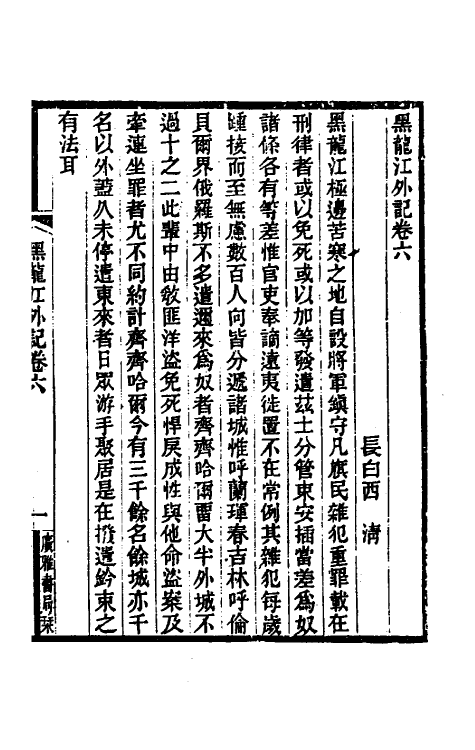 黑龍江外記卷六
長白西清
黑龍江極邊苦寒之地自設將軍鎮守凡旗民雜犯重罪載在
刑律者或以免死或以加等發遣茲土分管束安插當差爲奴
諸條各有等差惟官吏奉謫遠夷徙置不在常例其雜犯每歲
鍾接而至無慮數百人向皆分遞諸城惟呼蘭琿春吉林呼倫
貝爾界俄羅斯不多遣邇來爲奴者齊齊哈爾畱大半外城不
過十之二此輩中由敎匪洋盜免死悍戾成性與他命盜案及
牽連坐罪者尤不同約計齊齊哈爾今有三千餘名餘城亦千
名以外蓋久未停遣東來者日眾游手聚居是在撥遣鈐束之
有法耳
黑龍江外記卷六
一
廣雅書局栞